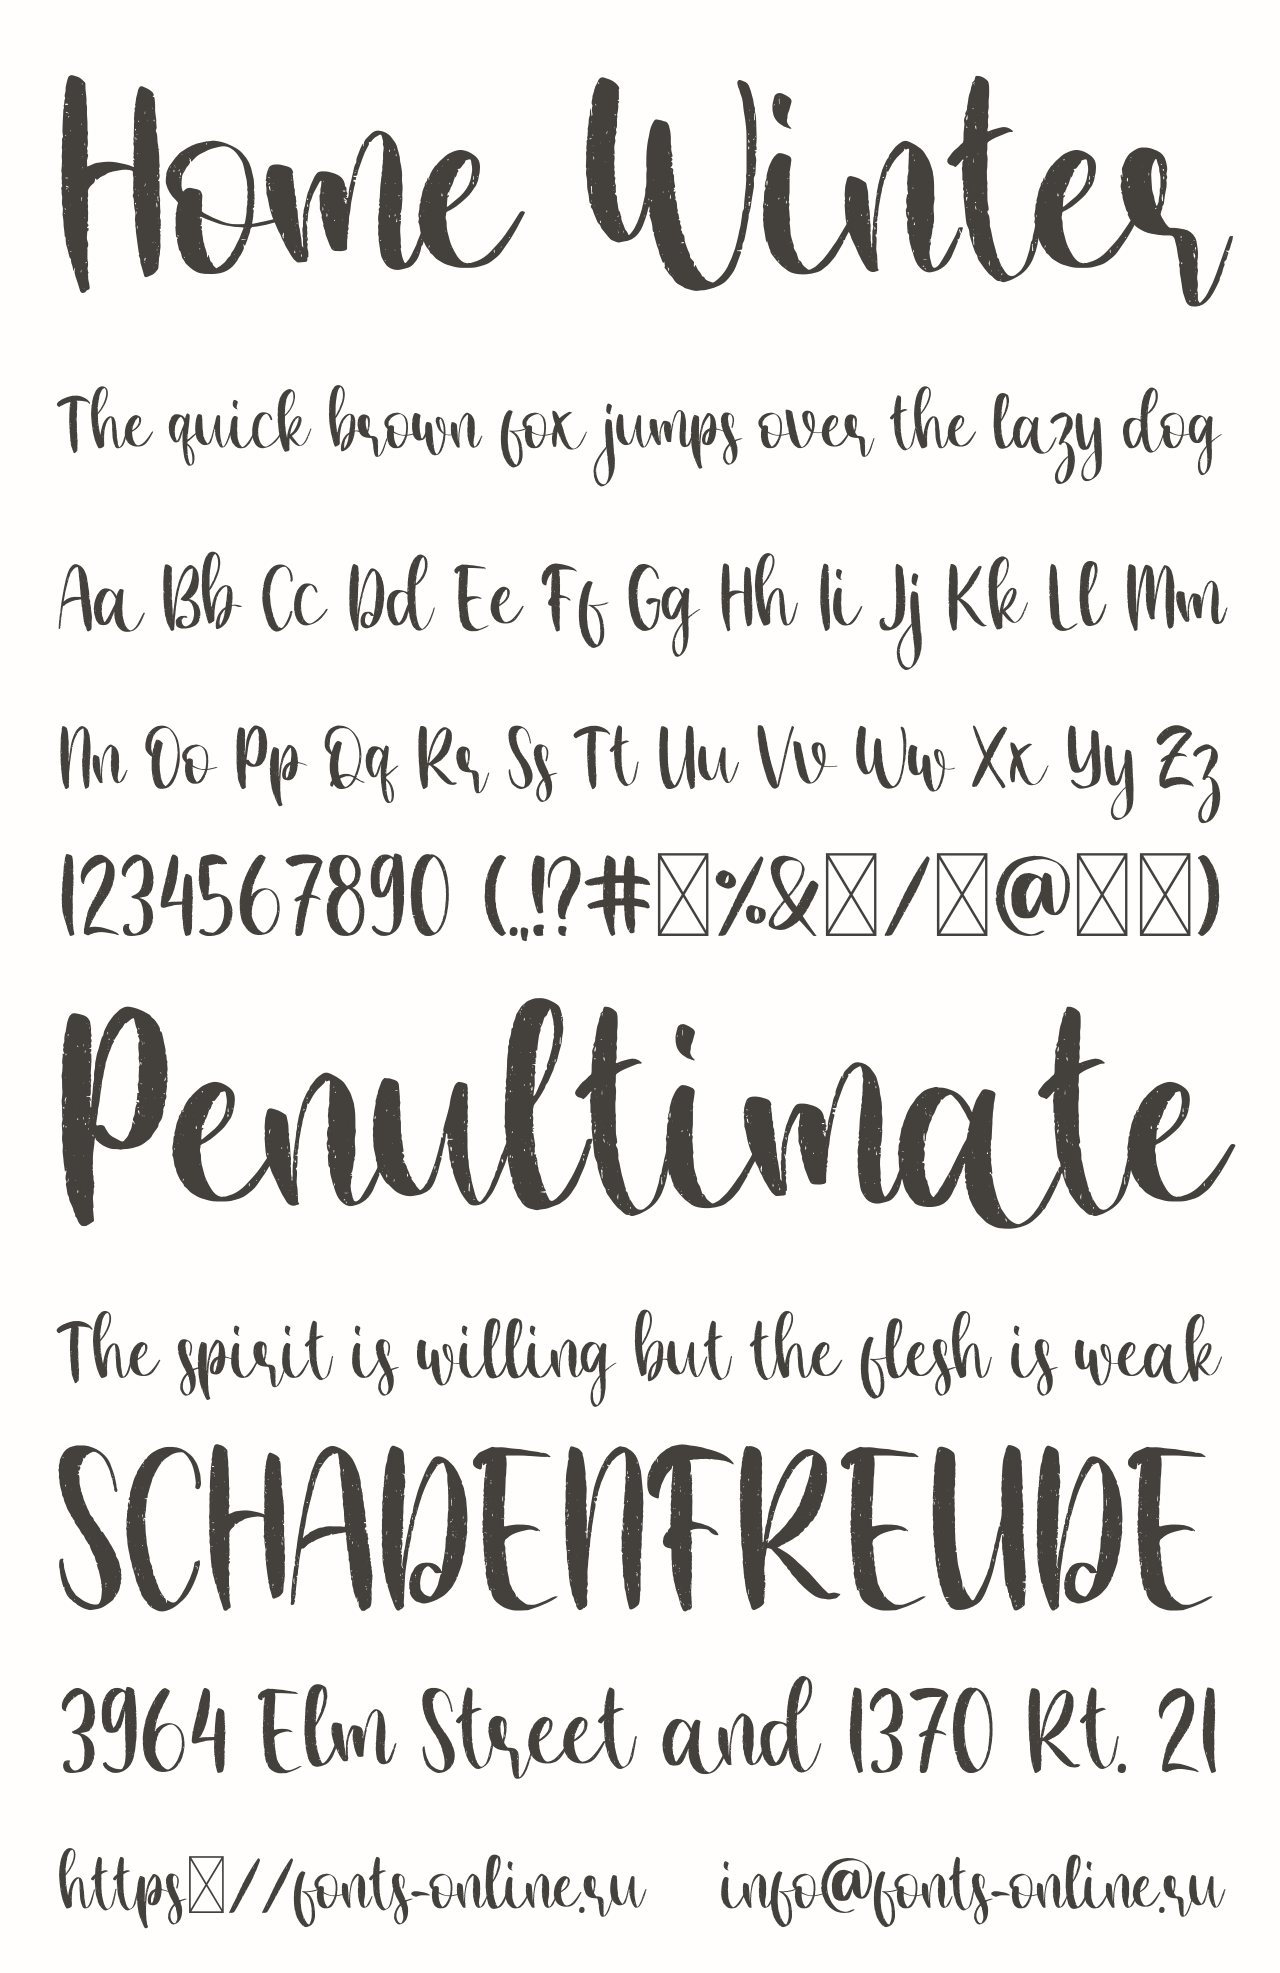 Home Winter
The quick brown fox jumps over the lazy dog
Aa Bb Cc Dd Ee Ff Gg Hh Ii Jj Kk Ll Mm
Nn Oo Pp Qq Rr Ss Tt Uu Vv Ww Xx Yy Zz
1234567890 (.,!?#☒%&☒/☒@☒☒)
Penultimate
The spirit is willing but the flesh is weak
SCHADENFREUDE
3964 Elm Street and 1370 Rt. 21
https☒//fonts-online.ru info@fonts-online.ru